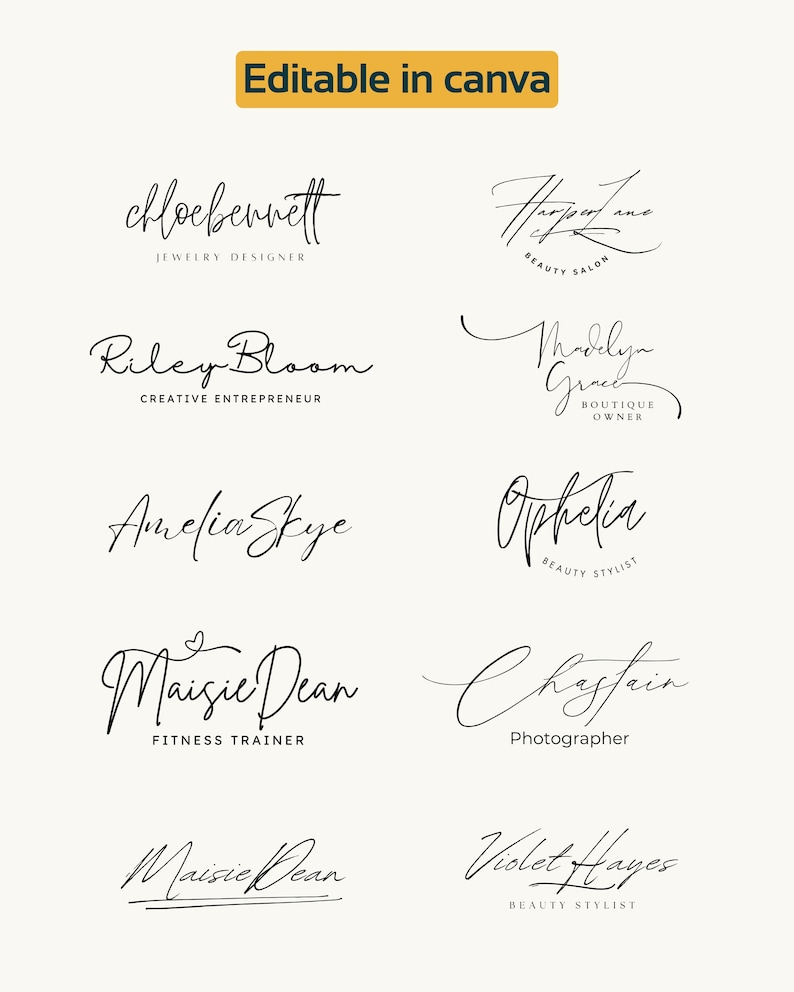 Editable in canva
chloebennett
JEWELRY DESIGNER
HarperLane
BEAUTY SALON
RileyBloom
CREATIVE ENTREPRENEUR
Madelyn
Grace
BOUTIQUE
OWNER
AmeliaSkye
Ophelia
BEAUTY STYLIST
MaisieDean
FITNESS TRAINER
Chastain
Photographer
MaisieDean
VioletHayes
BEAUTY STYLIST